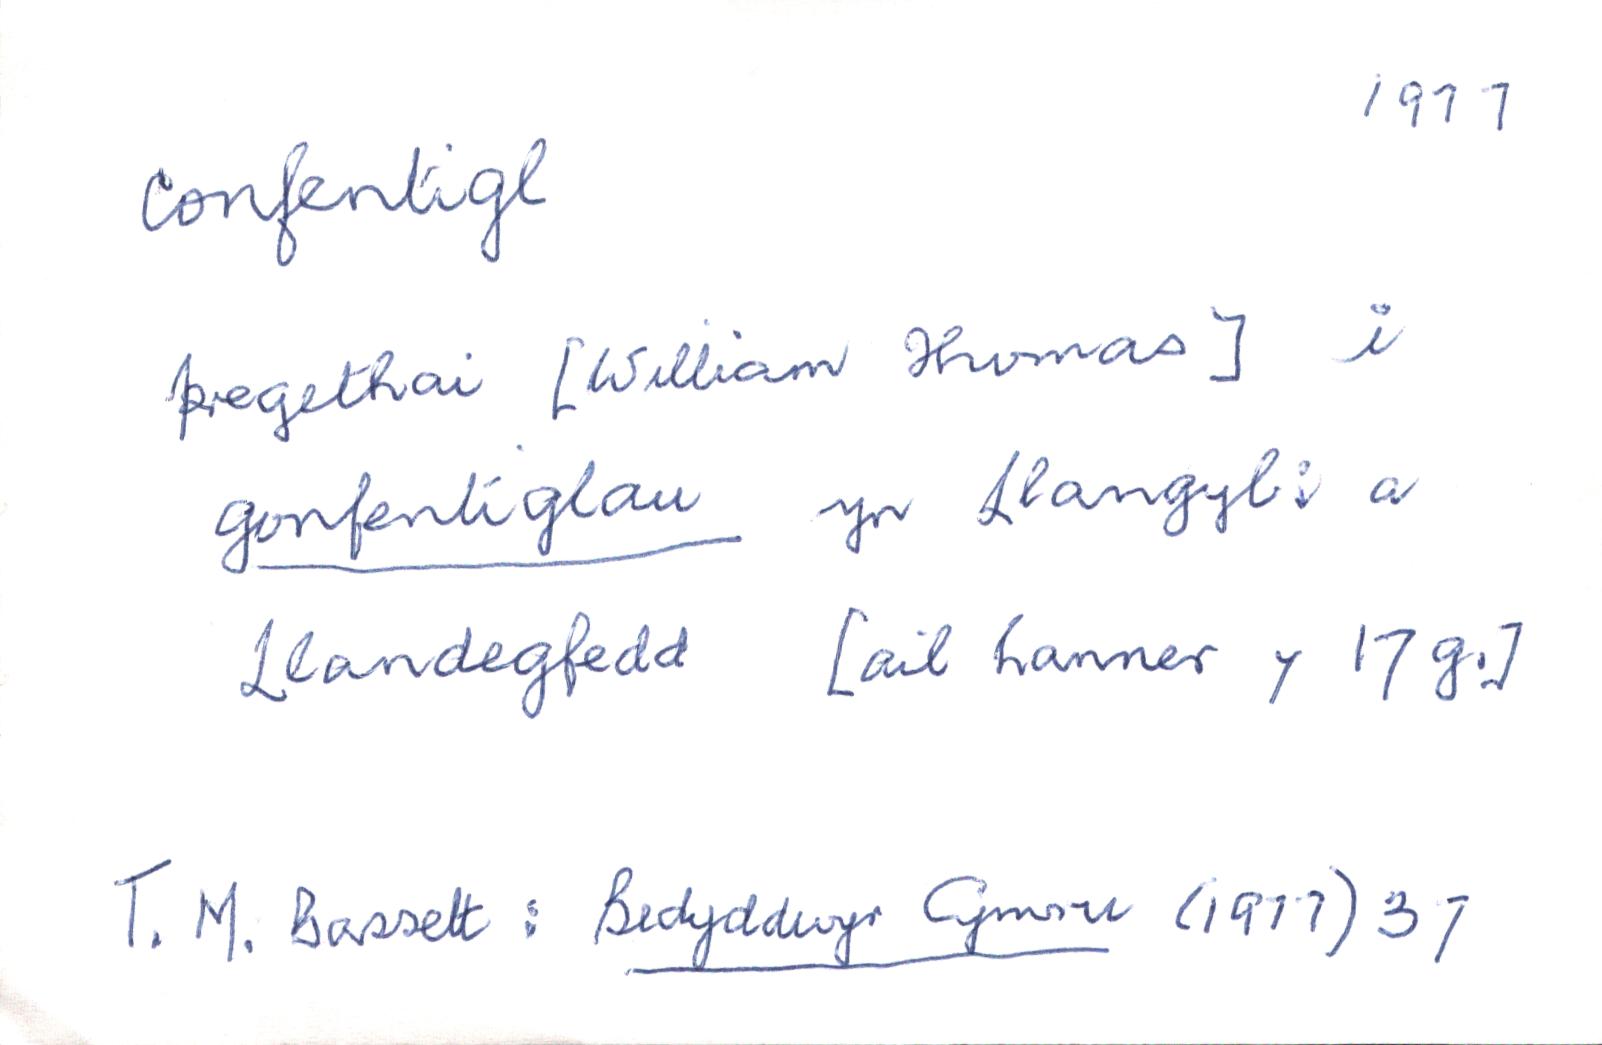 1977
confentigl
pregethai [William Thomas] i
gonfentiglau yn Llangybi a
Llandegfedd [ail hanner y 17 g.]
T. M. Bassett : Bedyddwyr Cymru (1977) 37